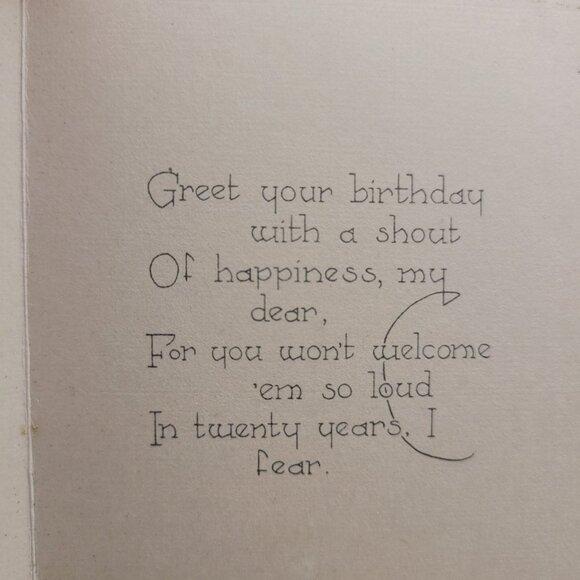 Greet your birthday
with a shout
Of happiness, my
dear,
For you won't welcome
'em so loud
In twenty years, I
fear.